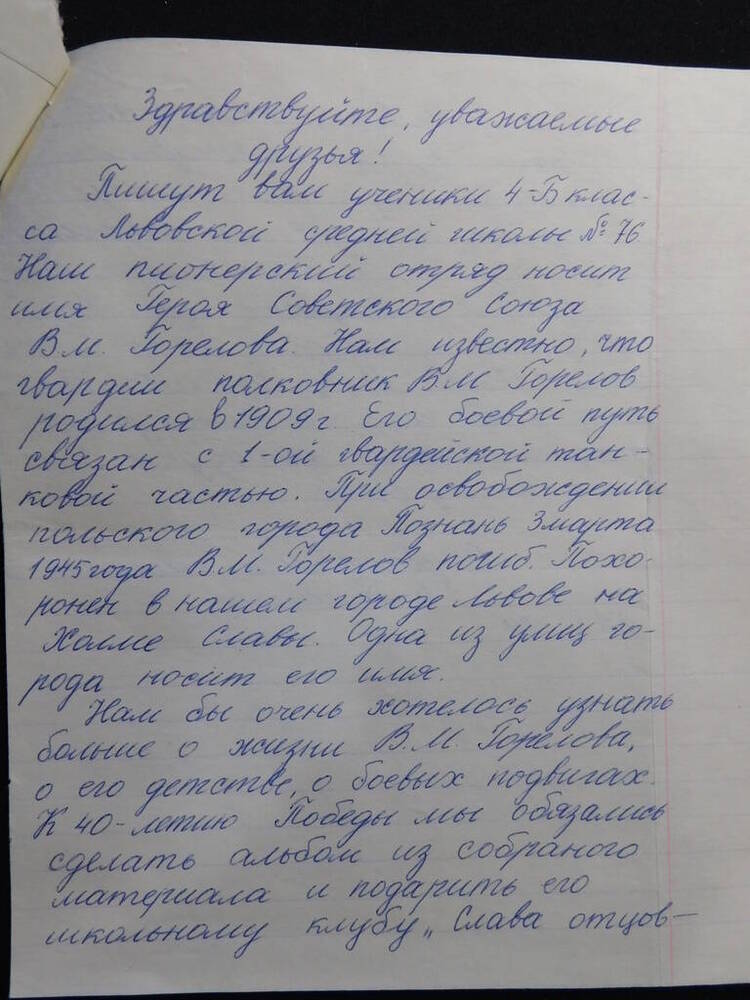 Здравствуйте, уважаемые
друзья!
Пишут вам ученики 4-Б клас-
са Львовской средней школы № 76
Наш пионерский отряд носит
имя Героя Советского Союза
В.М. Горелова. Нам известно, что
гвардии полковник В.М Горелов
родился в 1909 г. Его боевой путь
связан с 1-ой гвардейской тан-
ковой частью. При освобождении
польского города Познань 3 марта
1945 года В.М. Горелов погиб. Похо-
ронен в нашем городе Львове на
Холме Славы. Одна из улиц го-
рода носит его имя.
Нам бы очень хотелось узнать
больше о жизни В.М. Горелова,
о его детстве, о боевых подвигах.
К 40-летию Победы мы обязались
сделать альбом из собраного
материала и подарить его
школьному клубу „Слава отцов—